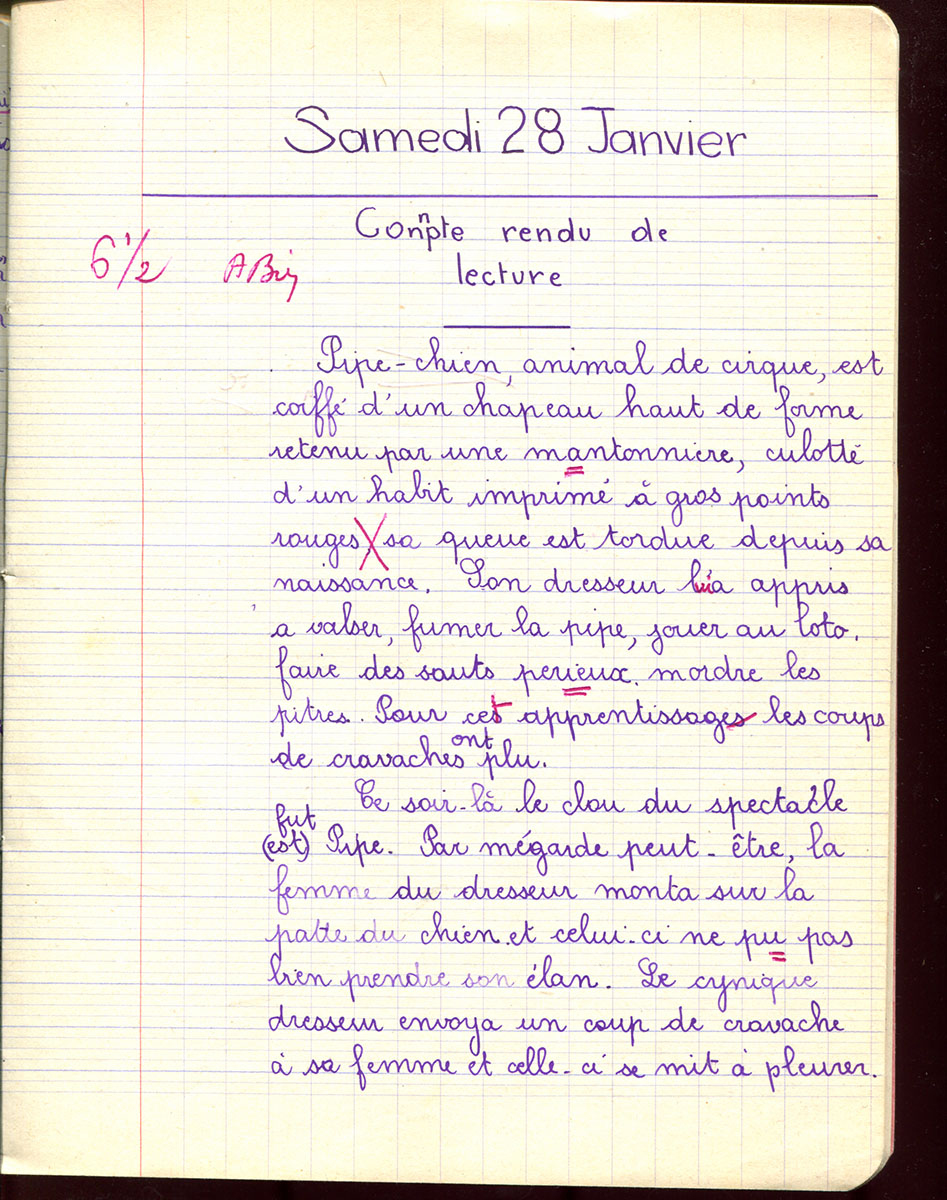 Samedi 28 Janvier
Connpte rendu de
lecture
6 1/2 ABig
Pipe-chien, animal de cirque, est
coiffé d'un chapeau haut de forme
retenu par une mantonnière, culotté
d'un habit imprimé à gros points
rouges sa queue est tordue depuis sa
naissance. Son dresseur lui a appris
a valser, fumer la pipe, jouer au loto.
faire des sauts perieux. mordre les
pitres. Pour cet apprentissage les coups
de cravaches ont plu.
Ce soir-là le clou du spectacle
fut
(est) Pipe. Par mégarde peut-être, la
femme du dresseur monta sur la
patte du chien et celui-ci ne pu pas
bien prendre son élan. Le cynique
dresseur envoya un coup de cravache
à sa femme et celle-ci se mit à pleurer.